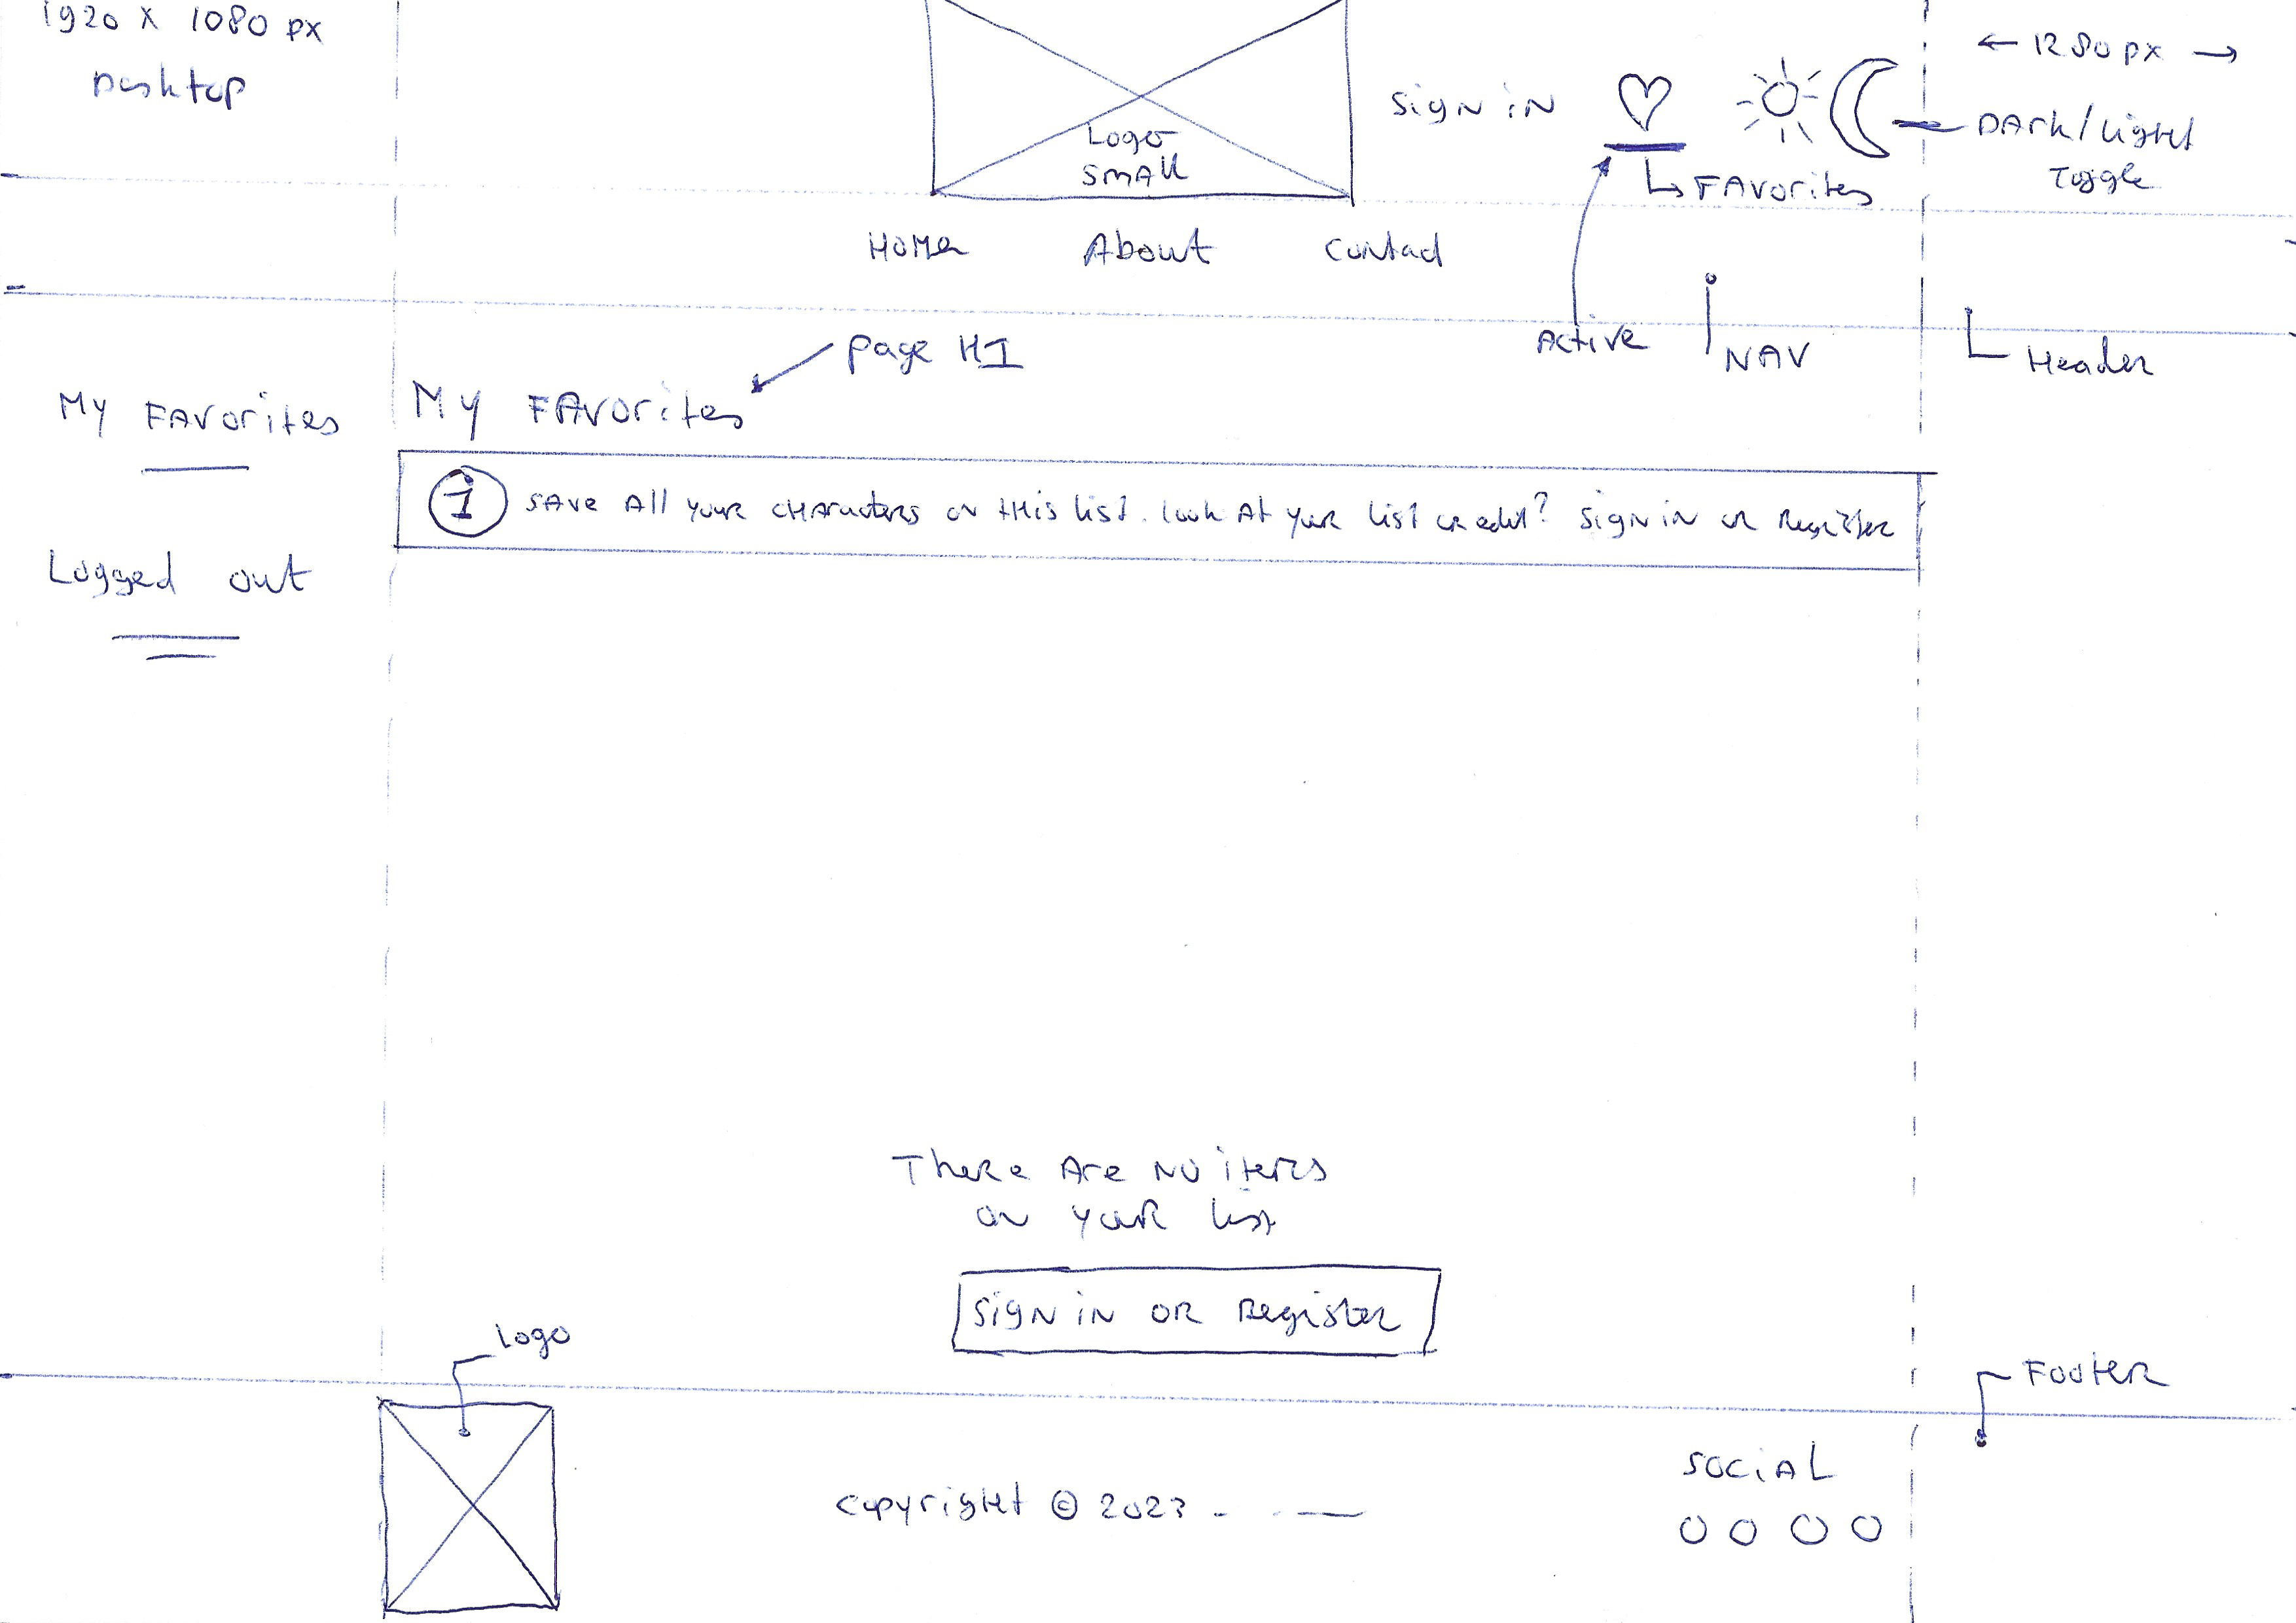 1920 x 1080 px
Desktop
Logo
small
sign in
← 1280 px →
Dark/Light
Toggle
Favorites
Home About Contact
Active
NAV
Header
page H1
My Favorites
My Favorites
i Save all your characters on this list. Look at your list or edit? Sign in or Register
Logged out
There are no items
on your list
Sign in or Register
Logo
Footer
Social
copyright © 2023